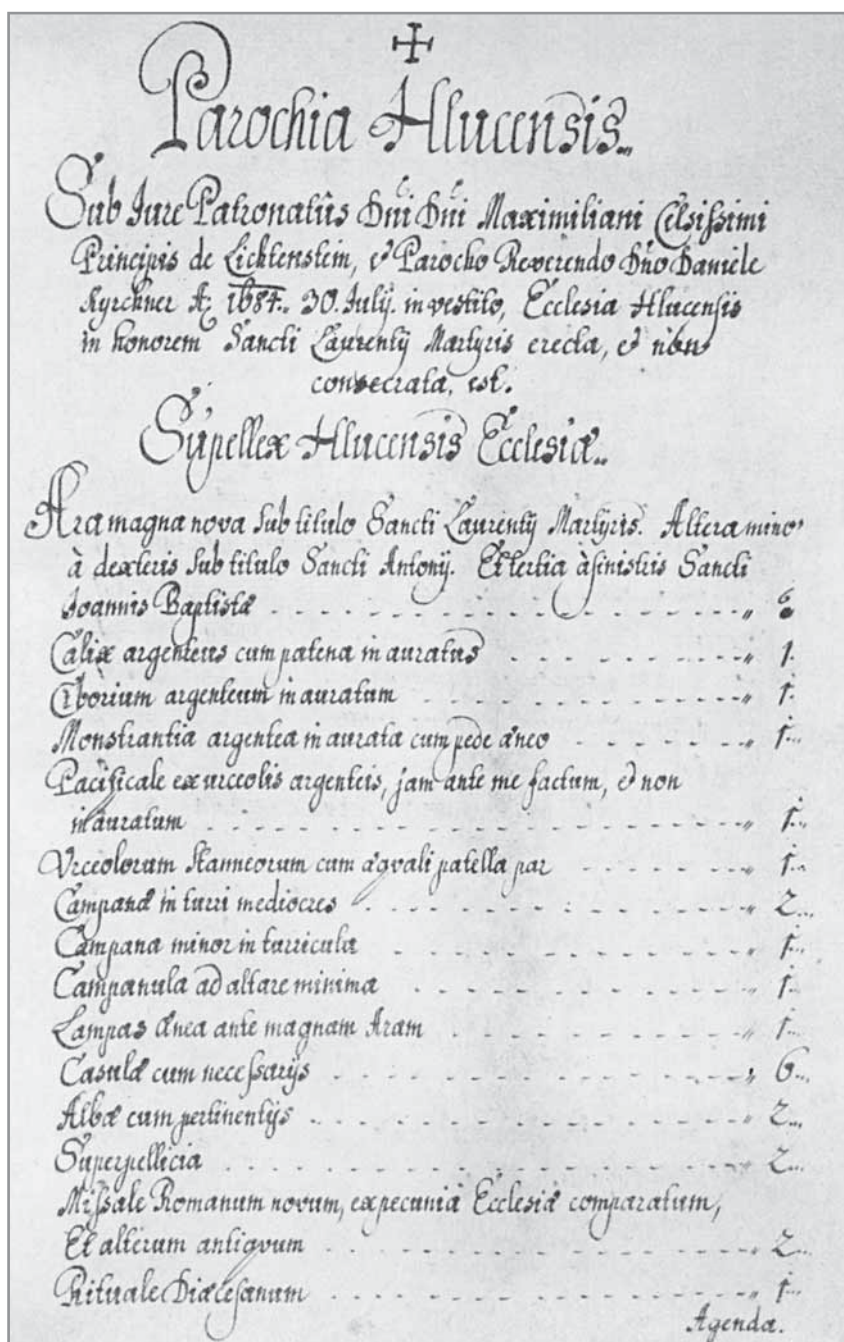 Parochia Hlucensis.
Sub Jure Patronatûs Dni Dni Maximiliani Celsissimi
Principis de Lichtenstein, et Parocho Reverendo Dno Daniele
Kyrchner Aº 1684. 30. Julij. investito, Ecclesia Hlucensis
in honorem Sancti Laurentij Martyris erecta, et non
consecrata, est.
Supellex Hlucensis Ecclesiæ.
Ara magna nova sub titulo Sancti Laurentij Martyris. Altera minor
à dexteris sub titulo Sancti Antonij. Et tertia à sinistris Sancti
Joannis Baptistæ
Calix argenteus cum patena inauratus 1.
Ciborium argenteum inauratum 1.
Monstrantia argentea inaurata cum pede æneo 1.
Pacificale ex urceolis argenteis, jam ante me factum, et non
inauratum 1.
Urceolorum stanneorum cum æquali patella par 1.
Campanæ in turri mediocres 2.
Campana minor in turricula 1.
Campanula ad altare minima 1.
Lampas ænea ante magnam Aram 1.
Casulæ cum necessarijs 6.
Albæ cum pertinentijs 2.
Superpellicia 2.
Missale Romanum novum, ex pecunia Ecclesiæ comparatum,
Et alterum antiquum 2.
Rituale Diœcesanum 1.
Agenda.